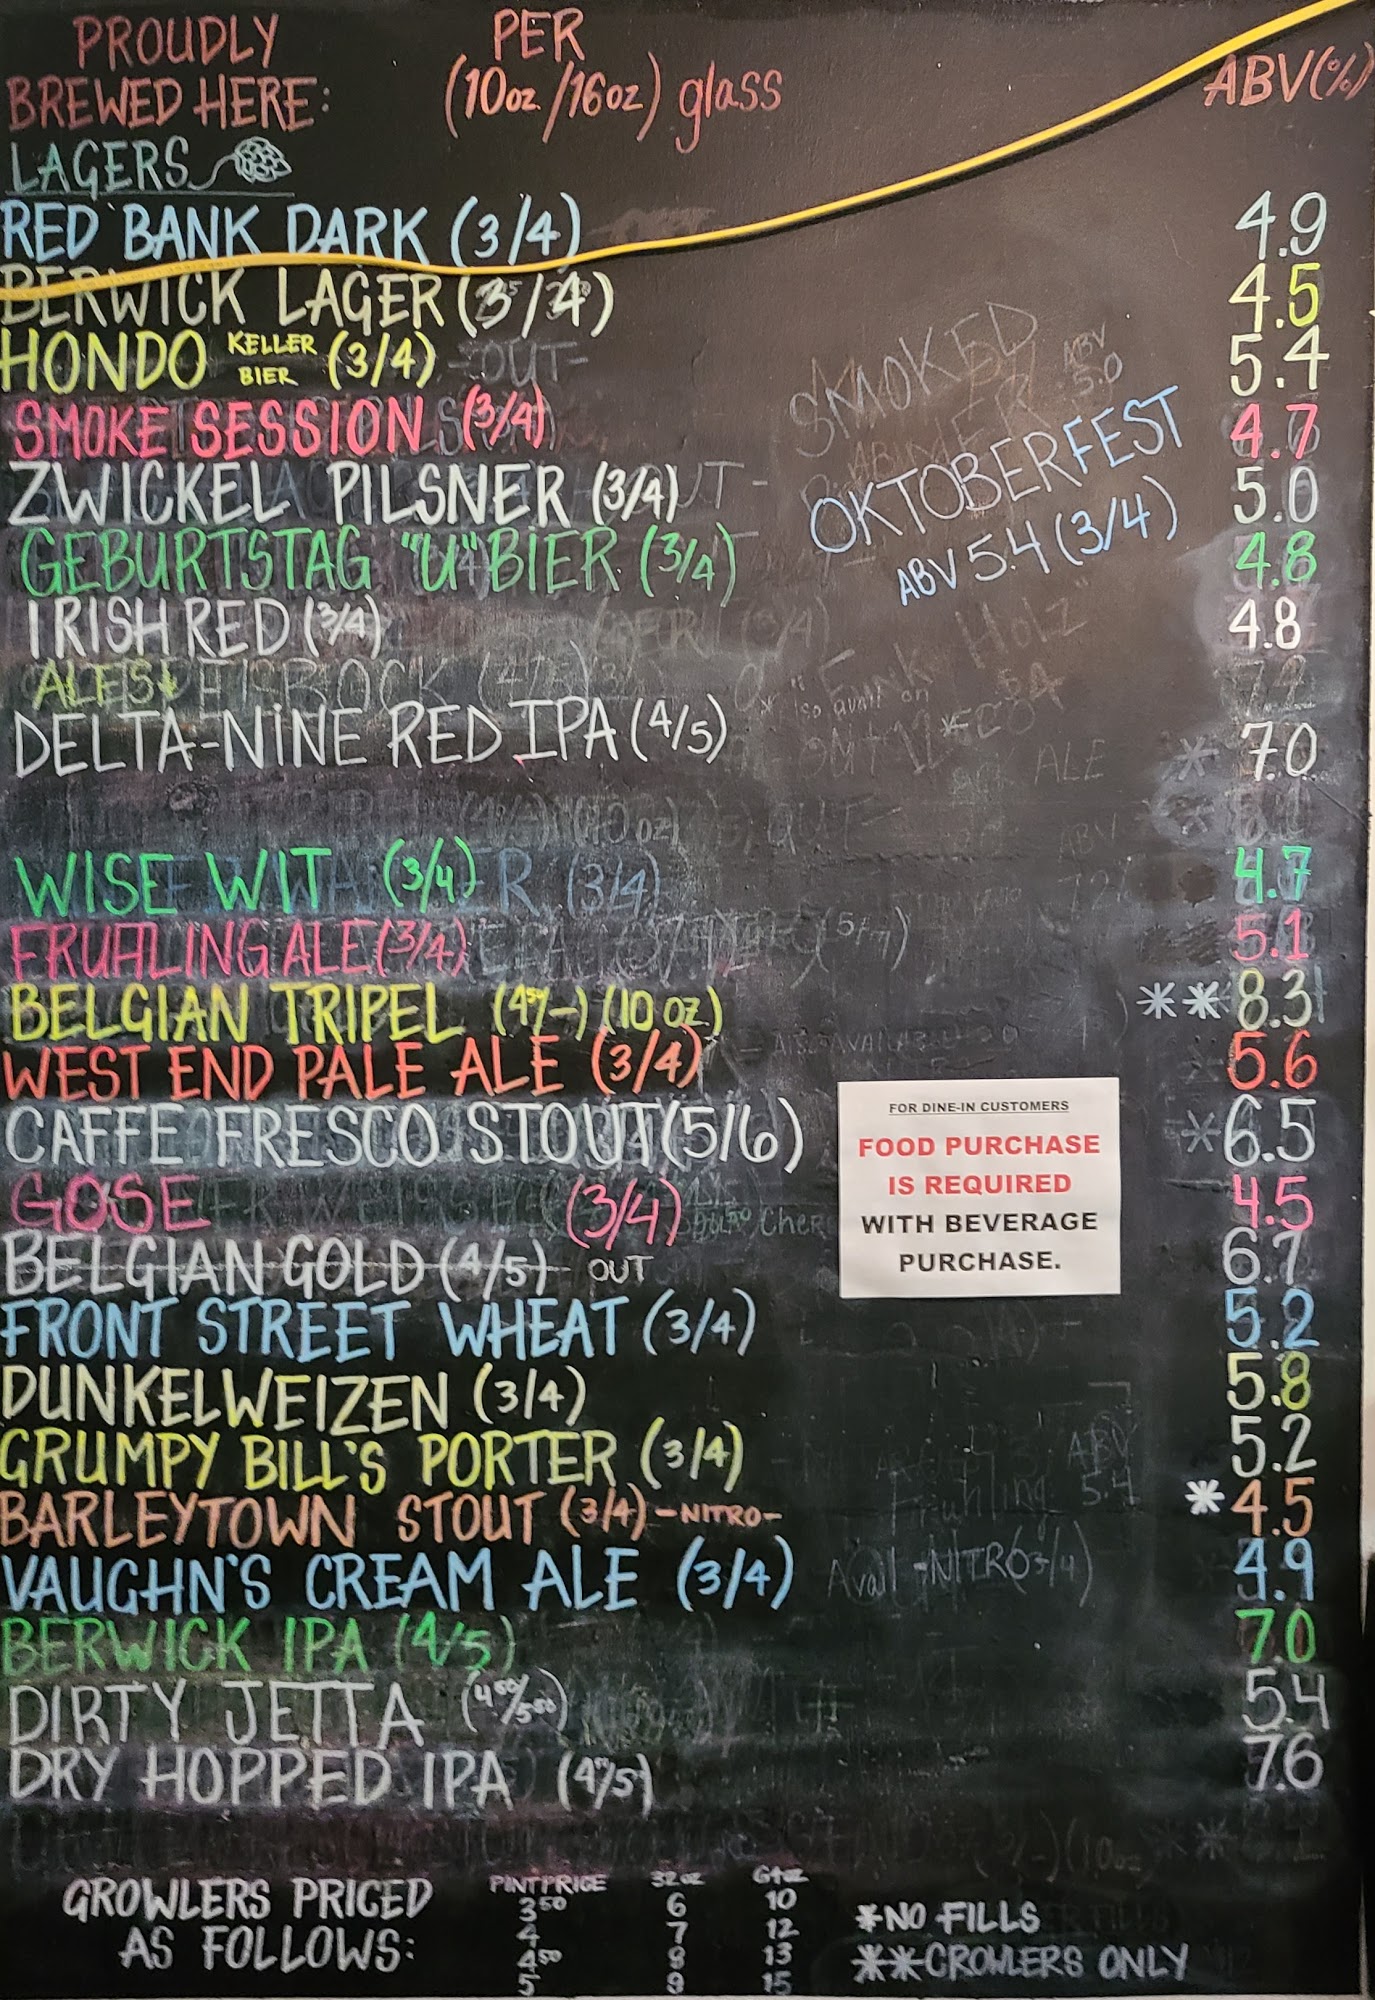 PROUDLY PER
BREWED HERE: (10oz/16oz) glass ABV(%)
LAGERS
RED BANK DARK (3/4) 4.9
BERWICK LAGER (3/4) 4.5
HONDO KELLER BIER (3/4) 5.4
SMOKE SESSION (3/4) 4.7
ZWICKEL PILSNER (3/4) 5.0
OKTOBERFEST
ABV 5.4 (3/4)
GEBURTSTAG "U" BIER (3/4) 4.8
IRISH RED (3/4) 4.8
ALES
DELTA-NINE RED IPA (4/5) * 7.0
WISE WIT (3/4) 4.7
FRUHLING ALE (3/4) 5.1
BELGIAN TRIPEL (450/-) (10 OZ) ** 8.3
WEST END PALE ALE (3/4) 5.6
CAFFE FRESCO STOUT (5/6) * 6.5
GOSE (3/4) 4.5
BELGIAN GOLD (4/5) - OUT 6.7
FRONT STREET WHEAT (3/4) 5.2
DUNKELWEIZEN (3/4) 5.8
GRUMPY BILL'S PORTER (3/4) 5.2
BARLEYTOWN STOUT (3/4) -NITRO- * 4.5
VAUGHN'S CREAM ALE (3/4) 4.9
BERWICK IPA (4/5) 7.0
DIRTY JETTA (450/550) 5.4
DRY HOPPED IPA 7.6
FOR DINE-IN CUSTOMERS
FOOD PURCHASE
IS REQUIRED
WITH BEVERAGE
PURCHASE.
GROWLERS PRICED
AS FOLLOWS:
PINT PRICE 32oz 64oz
350 6 10
4 7 12
450 8 13
5 9 15
*NO FILLS
**CROWLERS ONLY